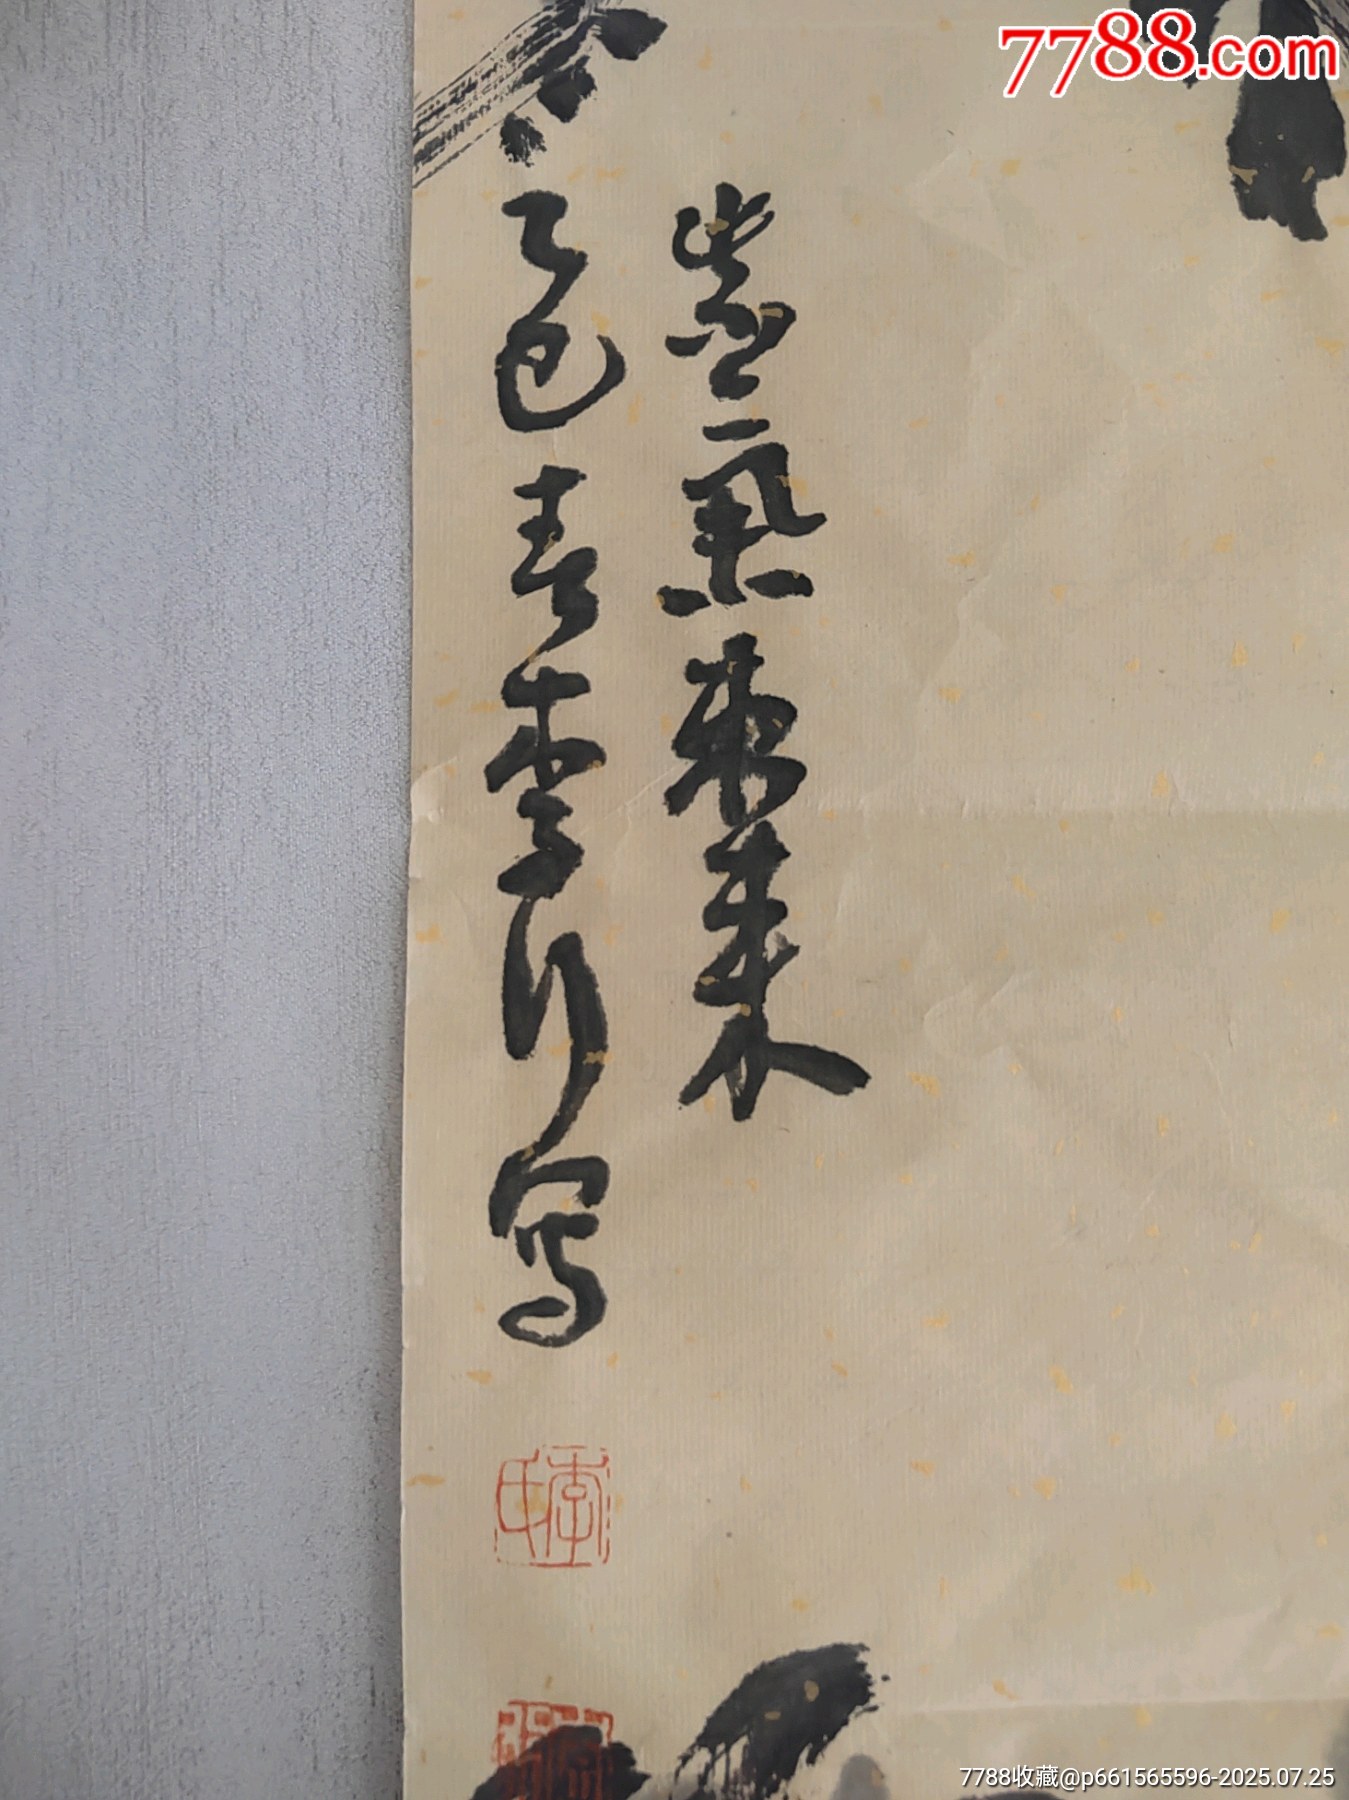 7788.com
紫氣東來
乙巳春李寫
李氏
7788收藏@p661565596-2025.07.25